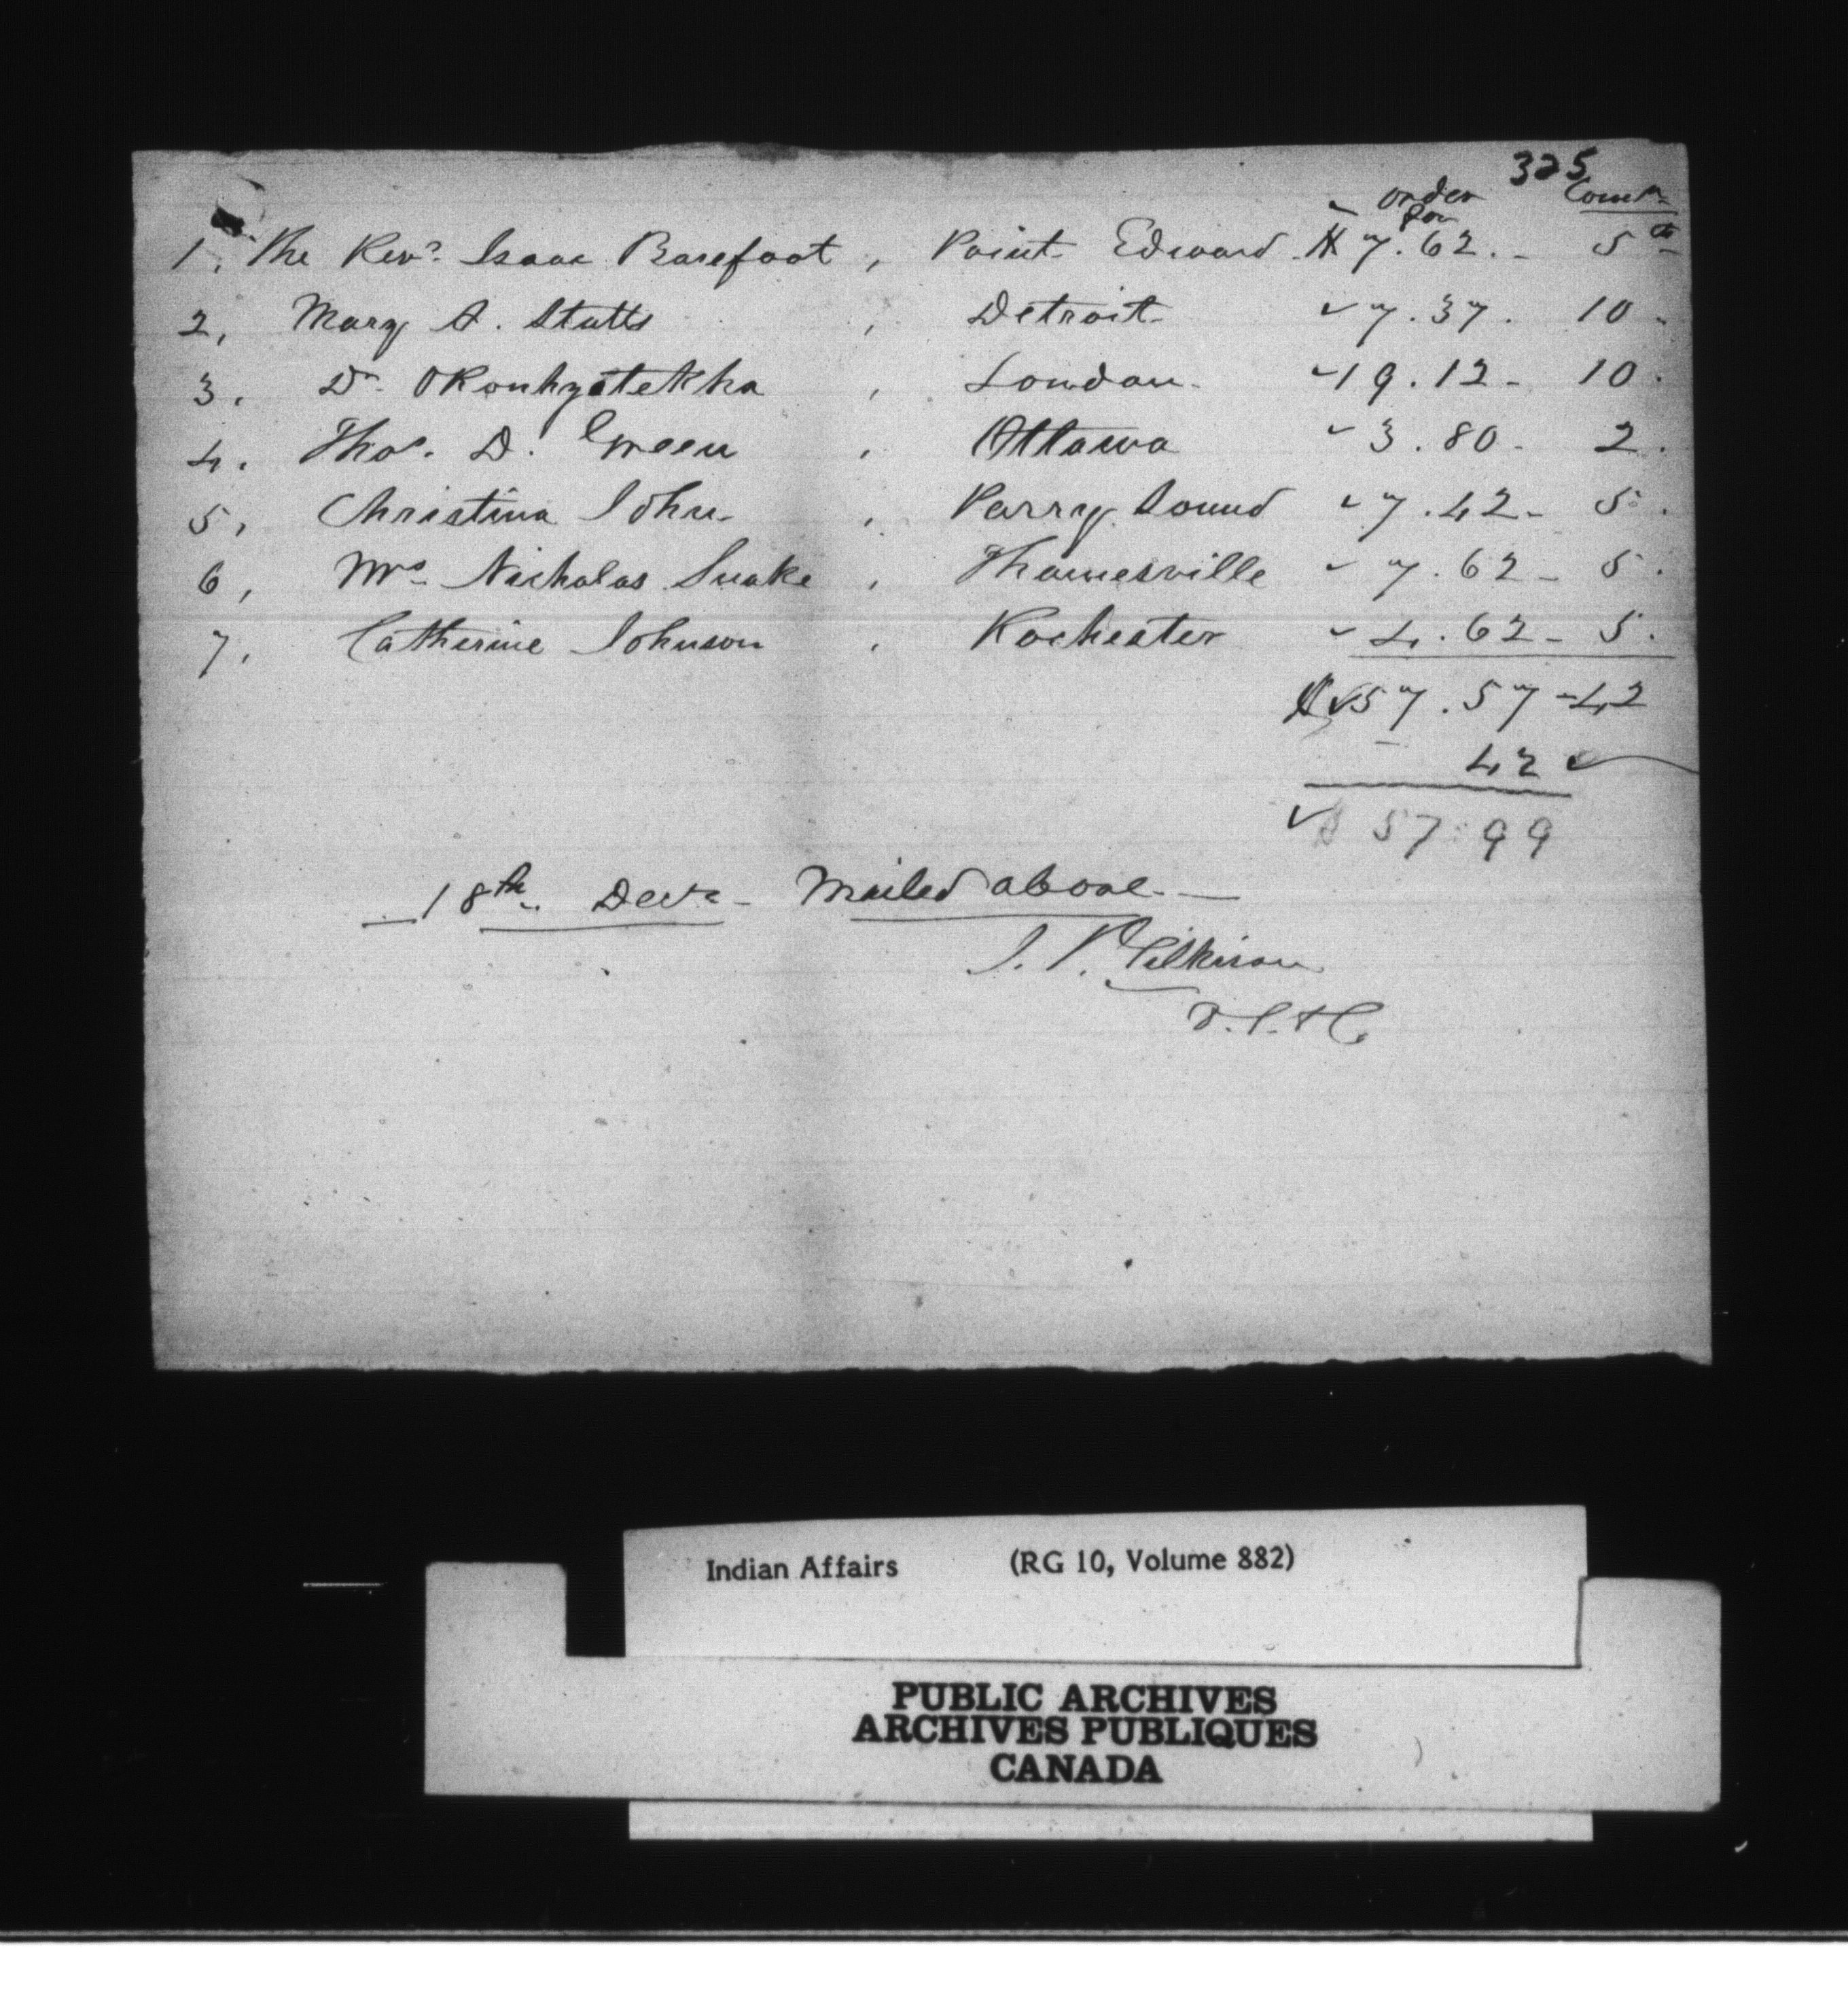 325
order for Comn
1, The Revd. Isaac Barefoot, Point Edward. $7.62. - 5 cts
2, Mary A. Statts, Detroit - 7.37. 10 -
3, Dr. Okonhyatekha, London. 19.12 - 10.
4. Thos. D. Green, Ottawa 3.80 - 2.
5, Christina John, Parry Sound 7.42 - 5.
6, Mrs Nicholas Snake, Thamesville 7.62 - 5.
7, Catherine Johnson, Rochester 4.62 - 5.
$57.57 - 42
42
$57.99
18th Decr - Mailed above. -
J. T. Gilkison
V.S. & C.
Indian Affairs (RG 10, Volume 882)
PUBLIC ARCHIVES
ARCHIVES PUBLIQUES
CANADA